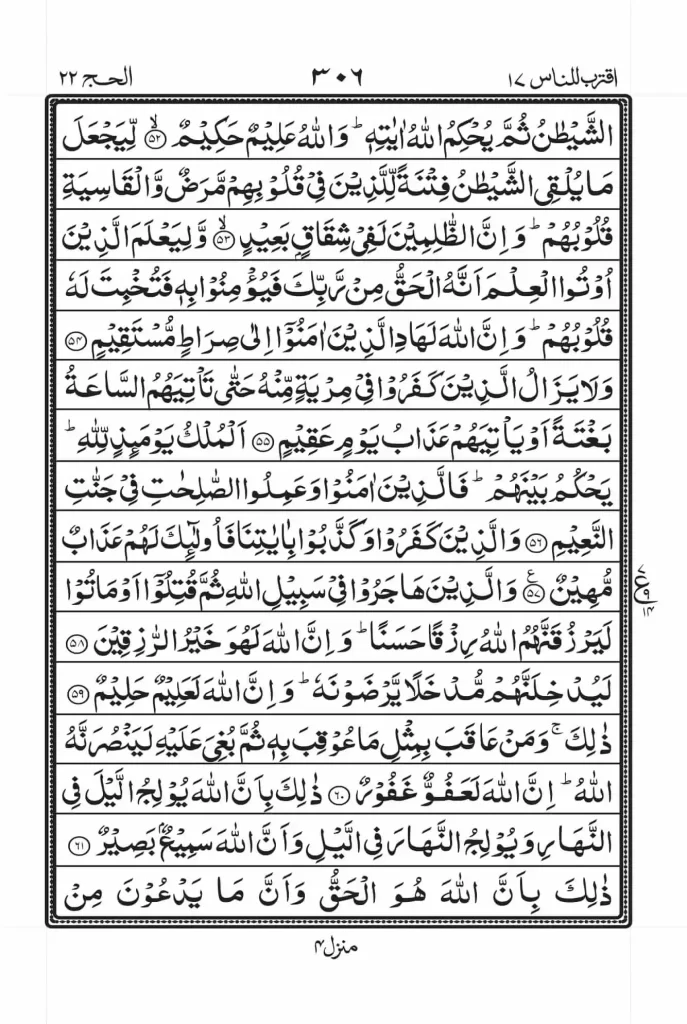 اقترب للناس ١٧ ٣٠٦ الحج ٢٢
الشَّيْطٰنُ ثُمَّ يُحْكِمُ اللّٰهُ اٰيٰتِهٖ ؕ وَاللّٰهُ عَلِيْمٌ حَكِيْمٌ ۙ‏﴿۵۲﴾ لِّيَجْعَلَ
مَا يُلْقِى الشَّيْطٰنُ فِتْنَةً لِّلَّذِيْنَ فِىْ قُلُوْبِهِمْ مَّرَضٌ وَّالْقَاسِيَةِ
قُلُوْبُهُمْ ؕ وَاِنَّ الظّٰلِمِيْنَ لَفِىْ شِقَاقٍۭ بَعِيْدٍ ۙ‏﴿۵۳﴾ وَّلِيَعْلَمَ الَّذِيْنَ
اُوْتُوا الْعِلْمَ اَنَّهُ الْحَقُّ مِنْ رَّبِّكَ فَيُؤْمِنُوْا بِهٖ فَتُخْبِتَ لَهٗ
قُلُوْبُهُمْ ؕ وَاِنَّ اللّٰهَ لَهَادِ الَّذِيْنَ اٰمَنُوْۤا اِلٰى صِرَاطٍ مُّسْتَقِيْمٍ ﴿۵۴﴾
وَلَا يَزَالُ الَّذِيْنَ كَفَرُوْا فِىْ مِرْيَةٍ مِّنْهُ حَتّٰى تَاْتِيَهُمُ السَّاعَةُ
بَغْتَةً اَوْ يَاْتِيَهُمْ عَذَابُ يَوْمٍ عَقِيْمٍ ﴿۵۵﴾ اَلْمُلْكُ يَوْمَئِذٍ لِّلّٰهِ ؕ
يَحْكُمُ بَيْنَهُمْ ؕ فَالَّذِيْنَ اٰمَنُوْا وَعَمِلُوا الصّٰلِحٰتِ فِىْ جَنّٰتِ
النَّعِيْمِ ﴿۵۶﴾ وَالَّذِيْنَ كَفَرُوْا وَكَذَّبُوْا بِاٰيٰتِنَا فَاُولٰٓئِكَ لَهُمْ عَذَابٌ
مُّهِيْنٌ ﴿۵۷﴾ ع وَالَّذِيْنَ هَاجَرُوْا فِىْ سَبِيْلِ اللّٰهِ ثُمَّ قُتِلُوْۤا اَوْ مَاتُوْا
ع ٧ ٩ ١٤
لَيَرْزُقَنَّهُمُ اللّٰهُ رِزْقًا حَسَنًا ؕ وَاِنَّ اللّٰهَ لَهُوَ خَيْرُ الرّٰزِقِيْنَ ﴿۵۸﴾
لَيُدْخِلَنَّهُمْ مُّدْخَلًا يَّرْضَوْنَهٗ ؕ وَاِنَّ اللّٰهَ لَعَلِيْمٌ حَلِيْمٌ ﴿۵۹﴾
ذٰلِكَ ۚ وَمَنْ عَاقَبَ بِمِثْلِ مَا عُوْقِبَ بِهٖ ثُمَّ بُغِىَ عَلَيْهِ لَيَنْصُرَنَّهُ
اللّٰهُ ؕ اِنَّ اللّٰهَ لَعَفُوٌّ غَفُوْرٌ ﴿۶۰﴾ ذٰلِكَ بِاَنَّ اللّٰهَ يُوْلِجُ الَّيْلَ فِى
النَّهَارِ وَيُوْلِجُ النَّهَارَ فِى الَّيْلِ وَاَنَّ اللّٰهَ سَمِيْعٌۢ بَصِيْرٌ ﴿۶۱﴾
ذٰلِكَ بِاَنَّ اللّٰهَ هُوَ الْحَقُّ وَاَنَّ مَا يَدْعُوْنَ مِنْ
منزل ٤